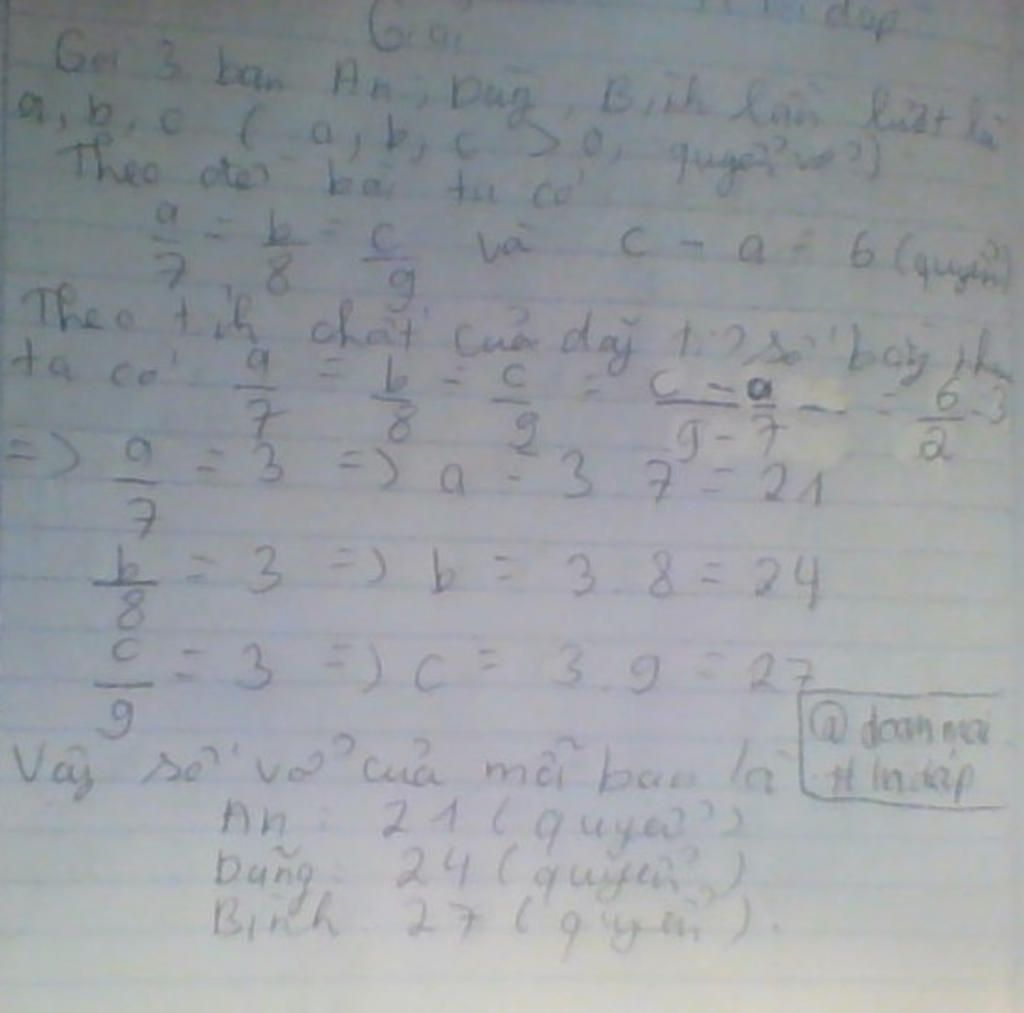 Giải
Gọi 3 bạn An, Dũng, Bình lần lượt là
a, b, c ( a, b, c > 0, quyển vở)
Theo đề bài ta có
a/7 = b/8 = c/9 và c - a = 6 (quyển)
Theo tính chất của dãy tỉ số bằng nh
ta có a/7 = b/8 = c/9 = c - a/9 - 7 = 6/2 = 3
=> a/7 = 3 => a = 3 7 = 21
b/8 = 3 => b = 3 . 8 = 24
c/9 = 3 => c = 3 . 9 = 27
Vậy số vở của mỗi bạn là
An : 21 ( quyển )
Dũng : 24 ( quyển )
Bình 27 ( quyển ) .